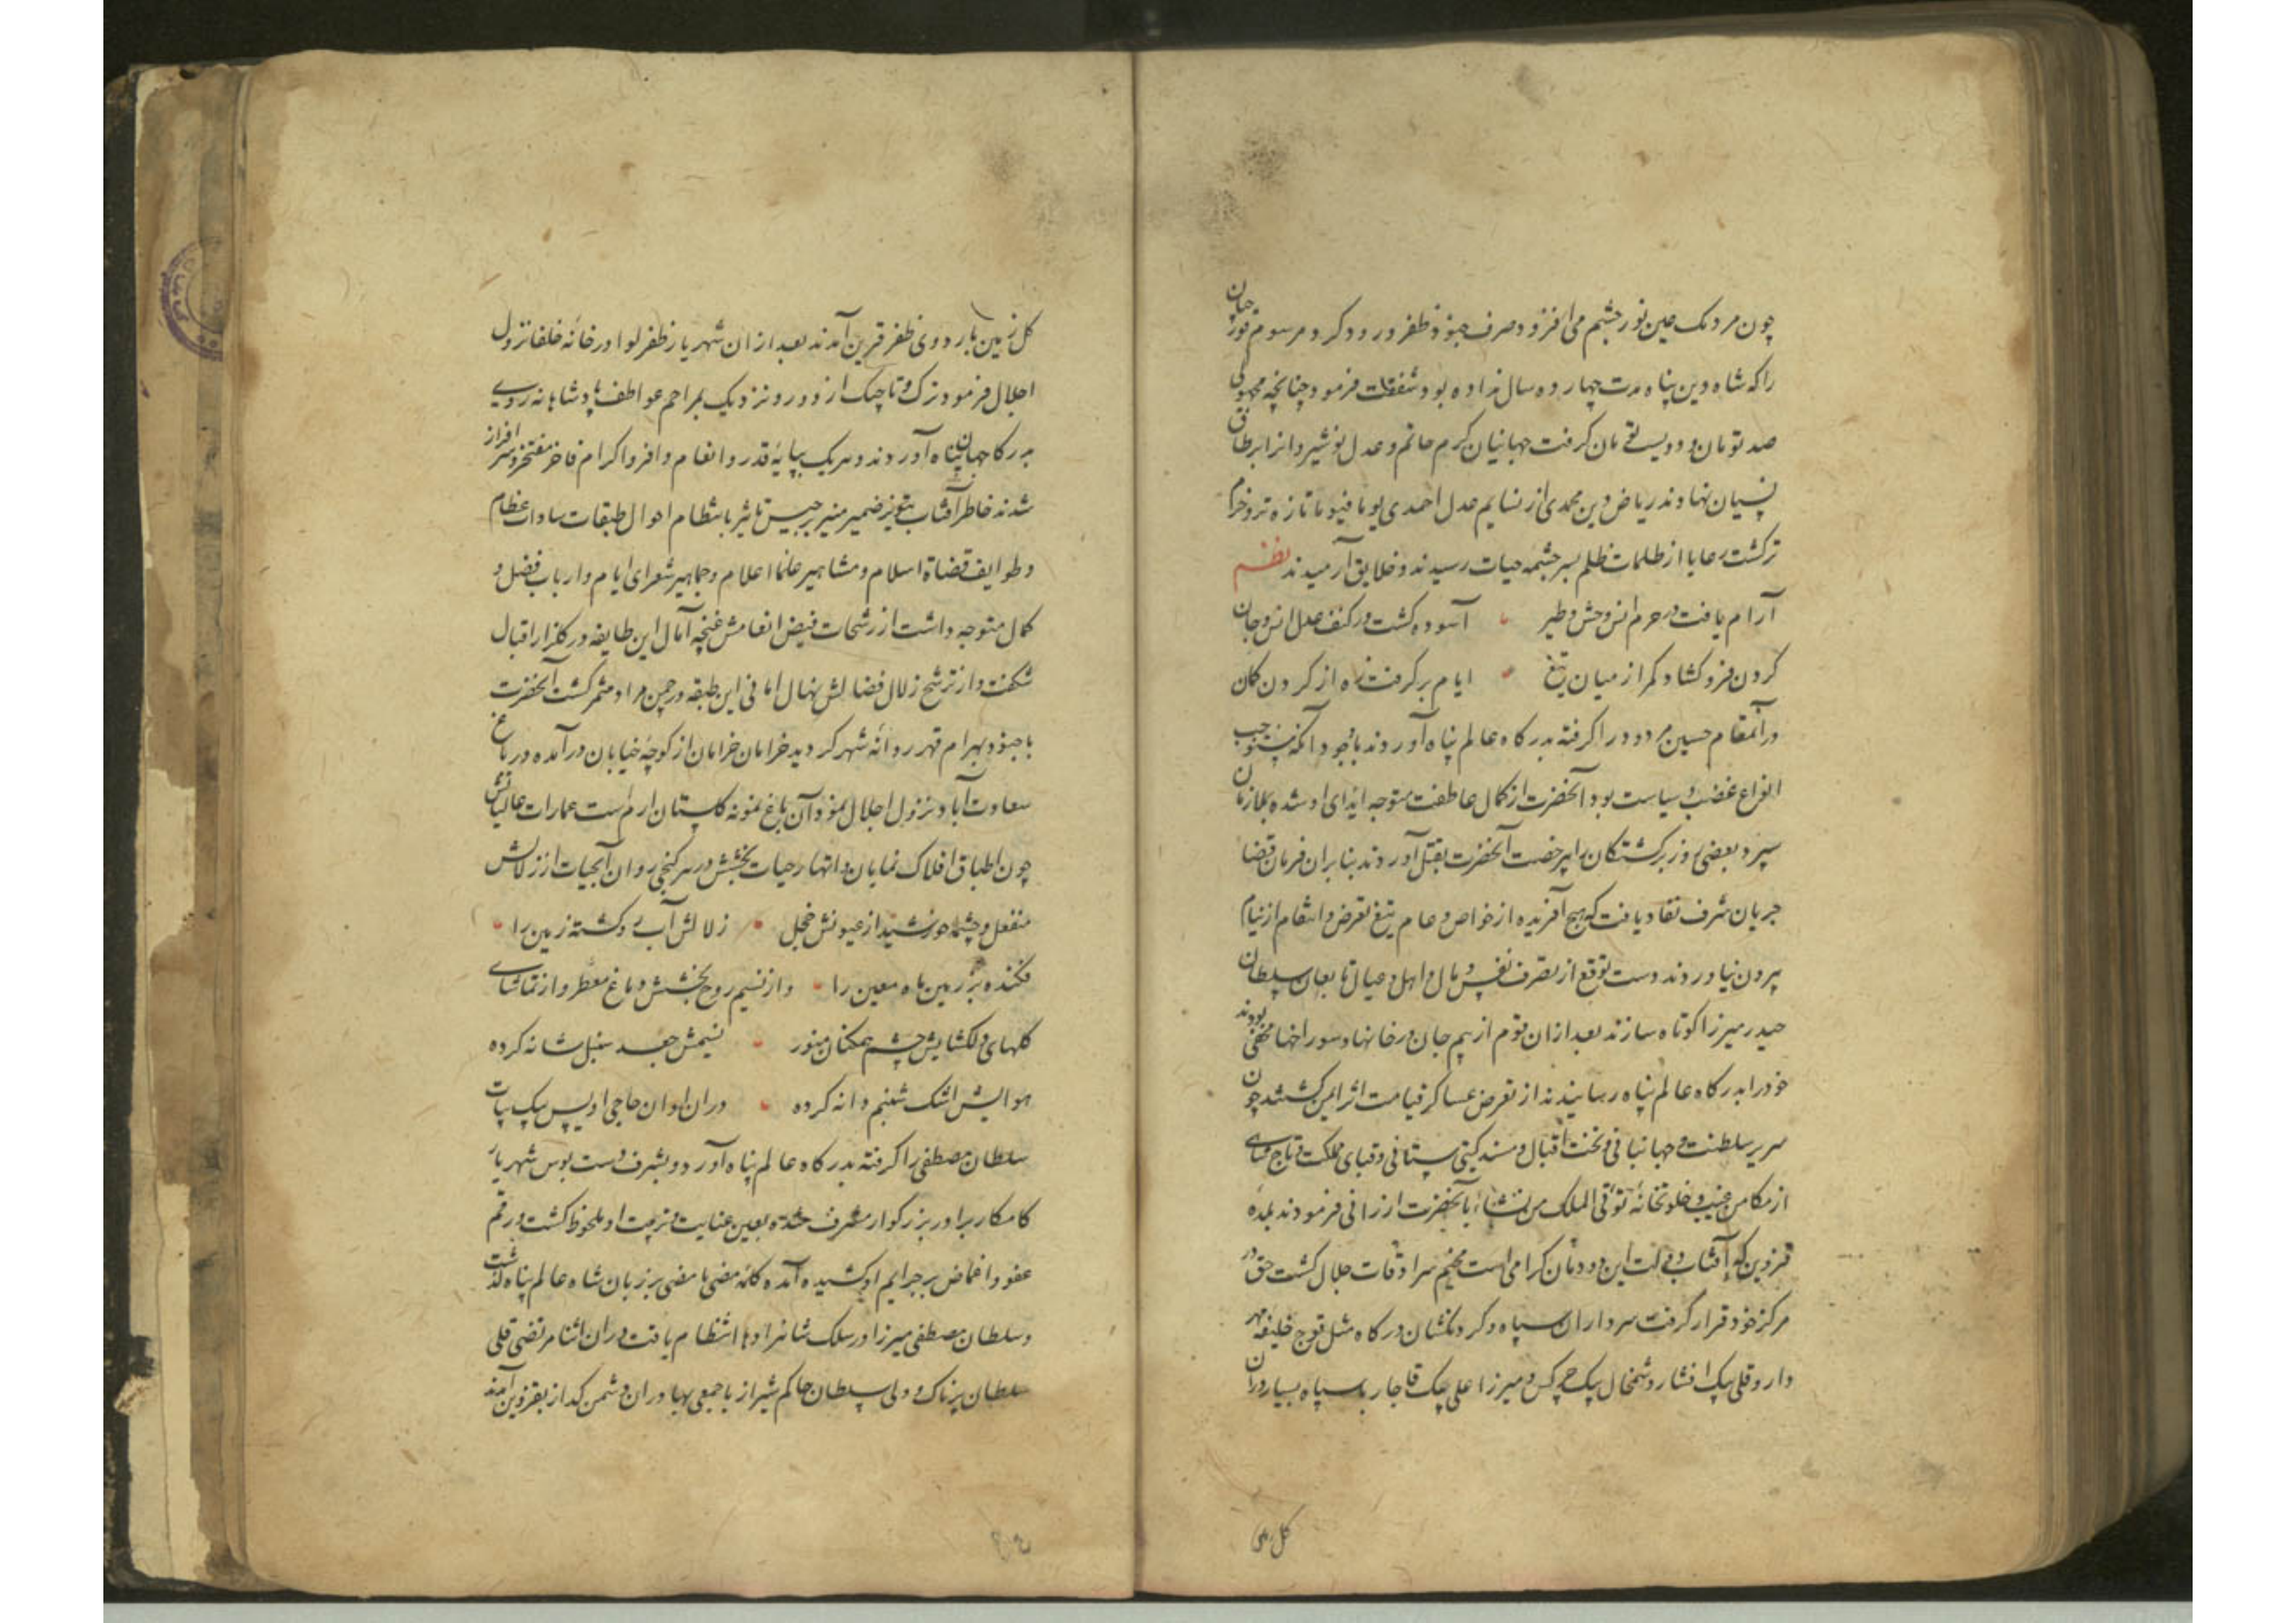 چون مردمک عین نور چشم می افزود و صرف جنود ظفر ورود کرد و مرسوم قورچیان
را که شاه دین پناه مدت چهارده سال نداده بود شفقت فرمود چنانچه
صد تومان و دویست تومان گرفت جهانیان کرم حاتم و عدل نوشیروان را بر طاق
نسیان نهادند ریاض دین محمدی از نسایم عدل احمدی یوما فیوما تازه تر و خرم
تر گشت رعایا از ظلمات ظلم بسر چشمه حیات رسیدند و خلایق آرمیدند نظم
آرام یافت در حرم انس وحش و طیر آسوده گشت در کنف عدل انس و جان
گردن فرو گشاد کمر از میان تیغ ایام بر گرفت زه از گردن کمان
در آنمقام حسین مردود را گرفته بدرگاه عالم پناه آوردند با وجود آنکه مستوجب
انواع غضب و سیاست بود آنحضرت از کمال عاطفت متوجه ایذای او نشده بملازمان
سپرد بعضی روز برگشتگان بی رخصت آنحضرت بقتل آوردند بنابران فرمان قضا
جریان شرف نفاد یافت که هیچ آفریده از خواص و عام تیغ تعرض و انتقام از نیام
بیرون نیاورند و دست توقع از تصرف نفس و مال و اهل و عیال تابعان سلطان
حیدر میرزا کوتاه سازند بعد ازان قوم از بیم جان در خانها و سوراخها مخفی بودند
خود را بدرگاه عالم پناه رسانیدند از تعرض عساکر قیامت اثر ایمن گشتند چون
سریر سلطنت و جهانبانی و تخت اقبال و مسند گیتی ستانی و قبای مملکت و تاج شاهی
از مکامن غیب و خلوتخانه تؤتی الملک من تشاء بآنحضرت ارزانی فرمودند بلده
قزوین که آفتاب دولت این دودمان گرامی است مخیم سرادقات جلال گشت حق در
مرکز خود قرار گرفت سرداران سپاه و گردنکشان درگاه مثل قوچ خلیفه مهر
دار و قلی بیک افشار و شمخال بیک چرکس و میرزا علی بیک قاجار با سپاه بسیار دران
گل زمین باردوی ظفر قرین آمدند بعد ازان شهریار ظفر لوا در خانه خلفا نزول
اجلال فرمود ترک و تاجیک از دور و نزدیک بمراحم عواطف پادشاهانه روی
بدرگاه جهان پناه آوردند و هریک بپایه قدر و انعام وافر و اکرام فاخر مفتخر و سرافراز
شدند خاطر آفتاب ضمیر منیر برجیس تاثیر بانتظام احوال طبقات سادات عظام
و طوایف قضاة اسلام و مشاهیر علما اعلام و جماهیر شعرای ایام و ارباب فضل و
کمال متوجه داشت از رشحات فیض انعامش غنچه آمال این طایفه در گلزار اقبال
شکفت و از ترشح زلال فضالش نهال امانی این طبقه در چمن مراد مثمر گشت آنحضرت
با جنود بهرام قهر روانه شهر گردید خرامان خرامان از کوچه خیابان در آمده در باغ
سعادت آباد نزول اجلال نمود آن باغ نمونه گلستان ارم است عمارات عالیاتش
چون اطباق افلاک نمایان و انهار حیات بخشش در هر کنجی روان آبحیات از زلالش
منفعل و چشمه خورشید از عیونش خجل زلالش آب رو گشته زمین را
فکنده بر زمین ماء معین را و از نسیم روح بخشش دماغ معطر و از تماشای
گلهای دلگشایش چشم همگنان منور نسیمش جعد سنبل شانه کرده
هوایش اشک شبنم دانه کرده دران اوان حاجی اویس بیک بیات
سلطان مصطفی را گرفته بدرگاه عالم پناه آورد و بشرف دست بوس شهریار
کامکار برادر بزرگوار مشرف شده بعین عنایت و تربیت او ملحوظ گشت و رقم
عفو و اغماض بر جرایم او کشیده آمده کلمه مضی ما مضی بر زبان شاه عالم پناه گذشت
و سلطان مصطفی میرزا در سلک شاهزادها انتظام یافت دران اثنا مرتضی قلی
سلطان پرناک و ولی سلطان حاکم شیراز با جمعی بهادران دشمن گداز بقزوین آمدند
گل زمین